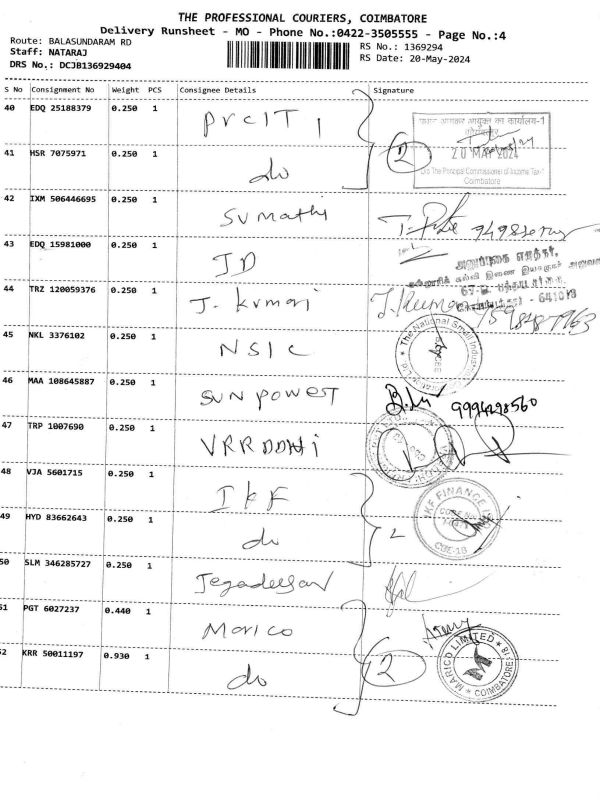 THE PROFESSIONAL COURIERS, COIMBATORE
Delivery Runsheet - MO - Phone No.:0422-3505555 - Page No.:4
Route: BALASUNDARAM RD
Staff: NATARAJ
DRS No.: DCJB136929404
RS No.: 1369294
RS Date: 20-May-2024
S No Consignment No Weight PCS Consignee Details Signature
40 EDQ 25188379 0.250 1 PrCIT 1
41 HSR 7075971 0.250 1 do
2
कार्यालय-1
20 MAY 2024
O/o The Principal Commissioner of Income Tax-1
Coimbatore
42 IXM 506446695 0.250 1 Sumathi
43 EDQ 15981000 0.250 1 JD
44 TRZ 120059376 0.250 1 J. Kumari
641018
45 NKL 3376102 0.250 1 NSIC
The National Small Indus
46 MAA 108645887 0.250 1 Sun Power
9994298560
47 TRP 1007690 0.250 1 VRRDDHI
48 VJA 5601715 0.250 1 IKF
49 HYD 83662643 0.250 1 do
2
IKF FINANCE
CBE-18
50 SLM 346285727 0.250 1 Jegadeesan
51 PGT 6027237 0.440 1 Marico
52 KRR 50011197 0.930 1 do
2
MARICO LIMITED
COIMBATORE